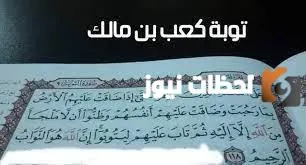 توبة كعب بن مالك
لحظات نيوز
إِذَا ضَاقَتْ عَلَيْهِمُ ٱلْأَرْضُ
بِمَا رَحُبَتْ وَضَاقَتْ عَلَيْهِمْ أَنفُسُهُمْ وَظَنُّوٓاْ أَن لَّا مَلْجَأَ
مِنَ ٱللَّهِ إِلَّآ إِلَيْهِ ثُمَّ تَابَ عَلَيْهِمْ لِيَتُوبُوٓاْ إِنَّ ٱللَّهَ هُوَ ٱلتَّوَّابُ
١١٨